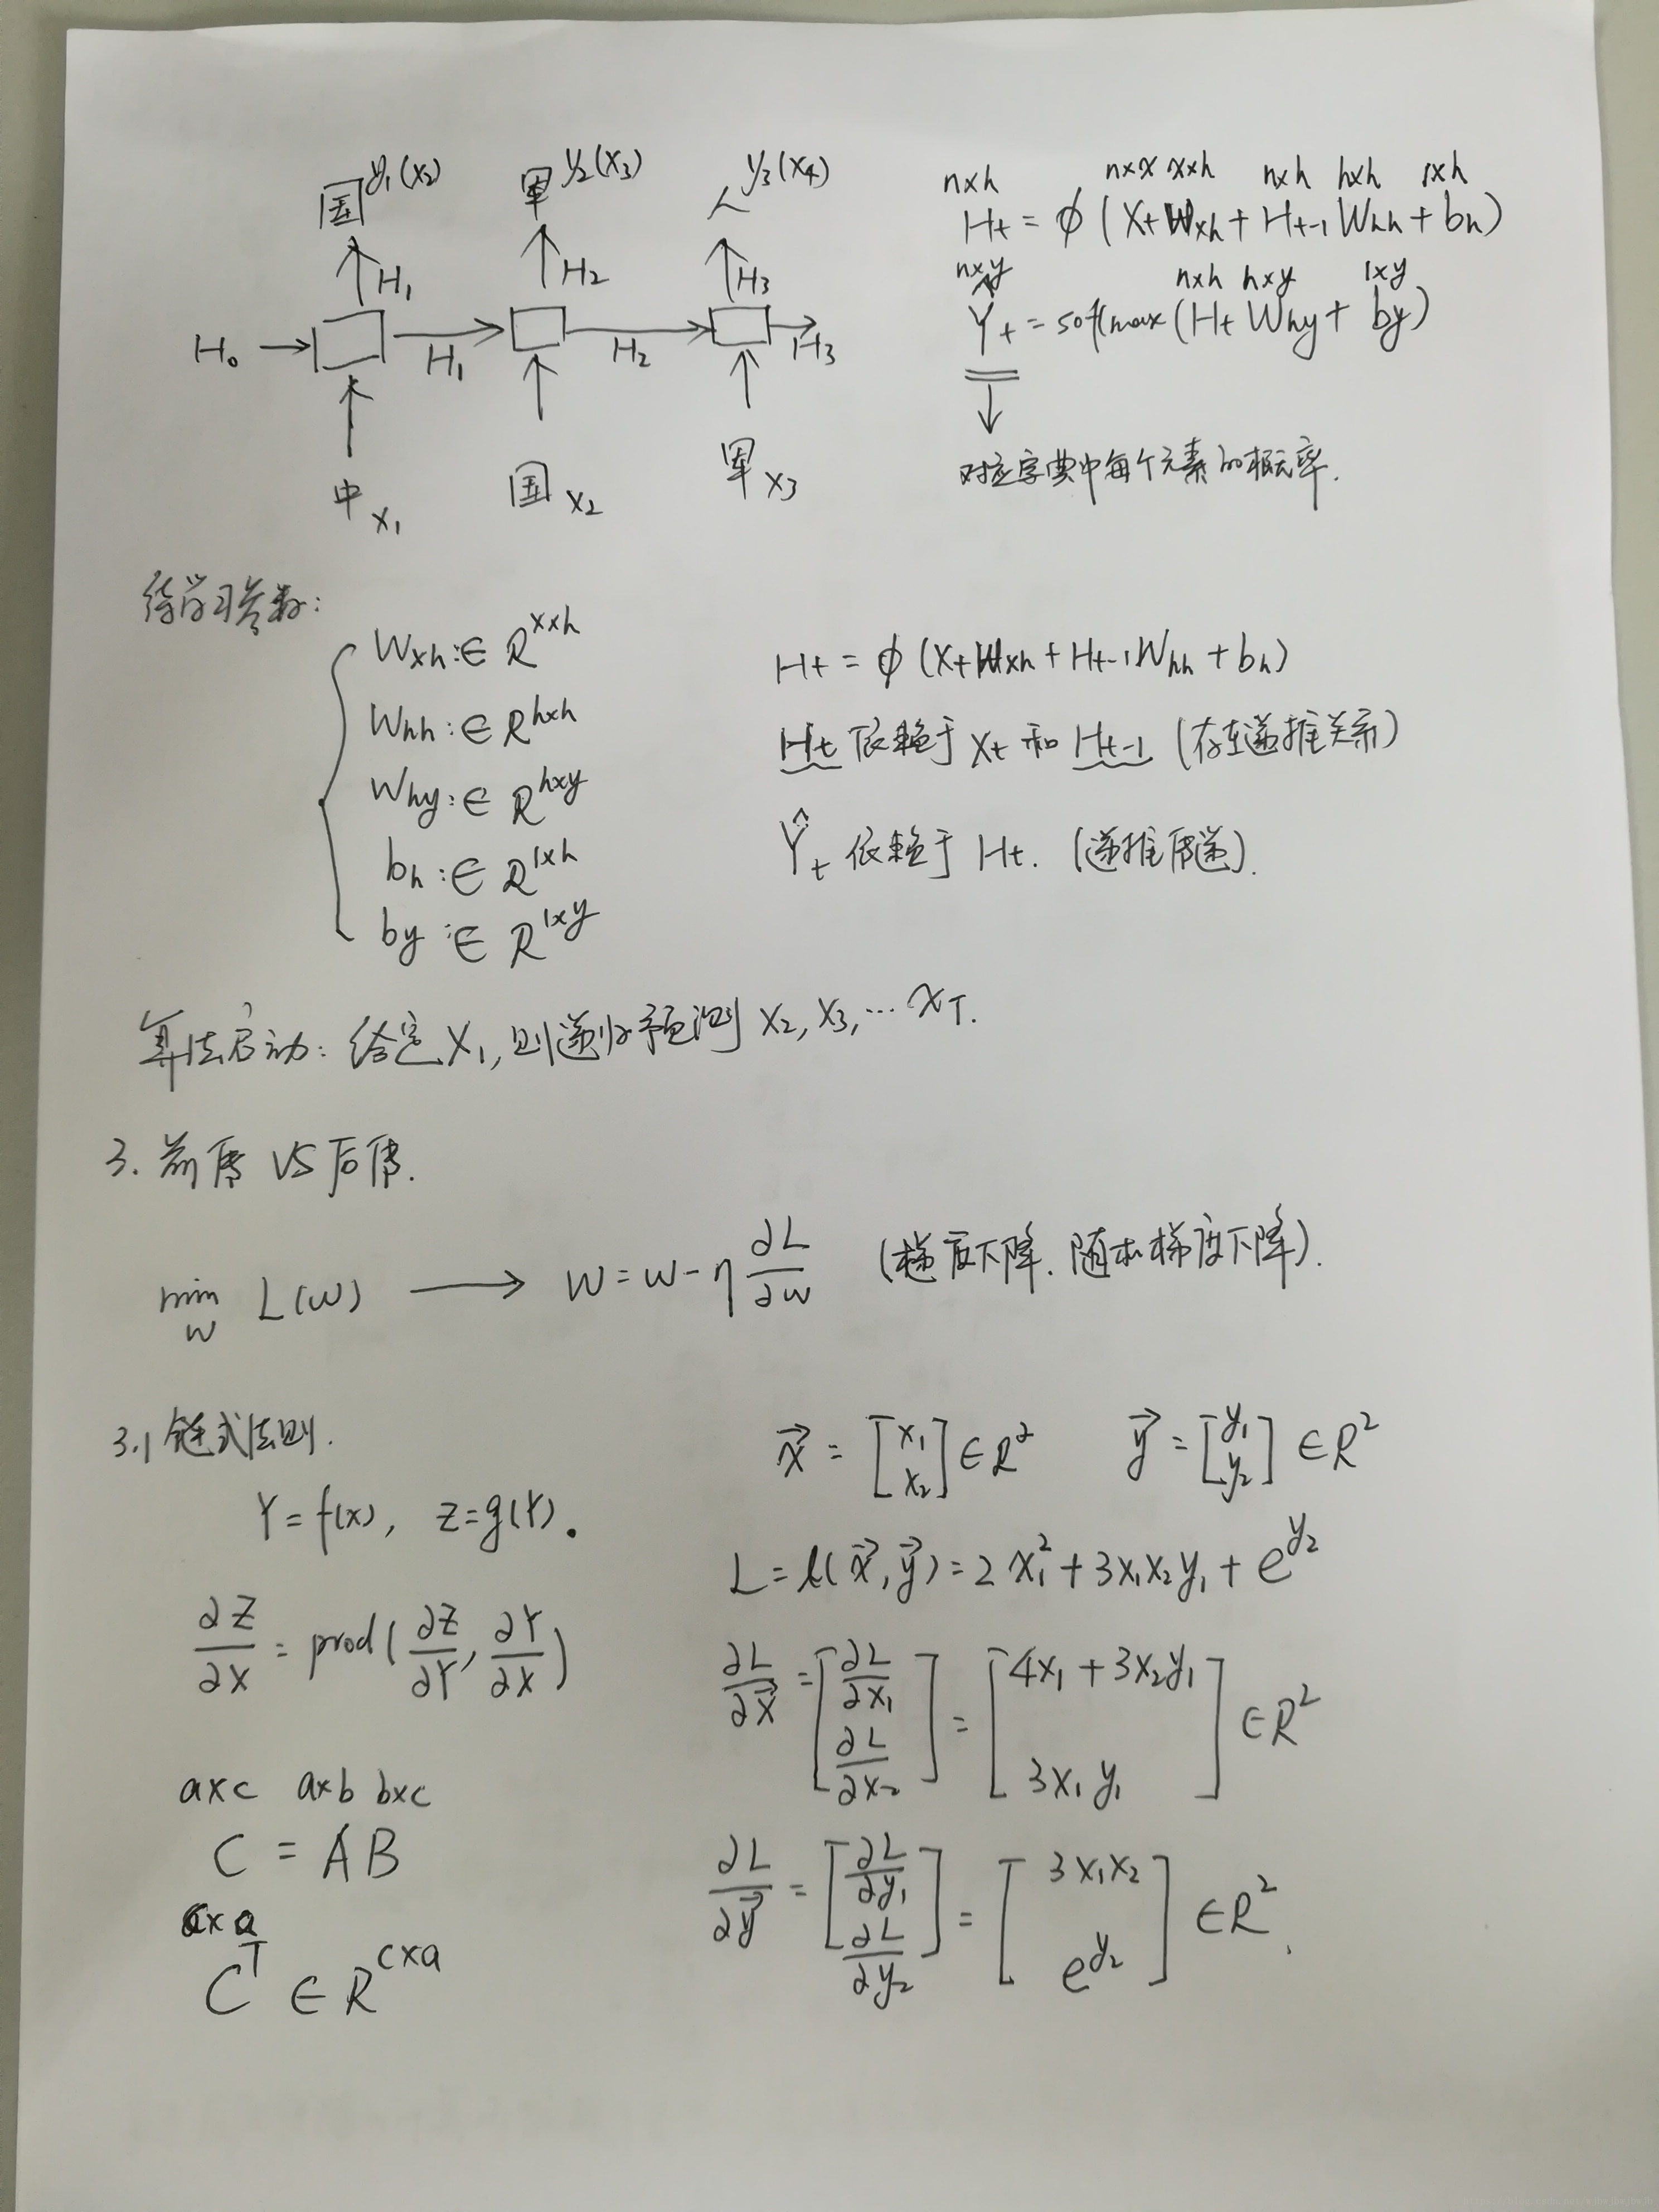 国 y₁(x₂) 军 y₂(x₃) 人 y₃(x₄)
H₁ H₂ H₃
H₀ H₁ H₂ H₃
中 x₁ 国 x₂ 军 x₃
n×h n×x x×h n×h h×h 1×h
Ht = φ(Xt Wxh + Ht-1 Whh + bh)
n×y n×h h×y 1×y
Ŷt = softmax(Ht Why + by)
对应字典中每个元素的概率.
待学习参数:
Wxh: ∈ R^{x×h}
Whh: ∈ R^{h×h}
Why: ∈ R^{h×y}
bh: ∈ R^{1×h}
by: ∈ R^{1×y}
Ht = φ(Xt Wxh + Ht-1 Whh + bh)
Ht 依赖于 Xt 和 Ht-1 (存在递推关系)
Ŷt 依赖于 Ht. (递推传递).
算法启动: 给定 X₁, 则递归预测 X₂, X₃, ... XT.
3. 前传 VS 后传.
min_w L(w) → w = w - η ∂L/∂w (梯度下降. 随机梯度下降).
3.1 链式法则.
Y = f(x), Z = g(Y).
∂Z/∂X = prod(∂Z/∂Y, ∂Y/∂X)
a×c a×b b×c
C = A B
c×a
C^T ∈ R^{c×a}
x⃗ = [x₁ x₂] ∈ R² y⃗ = [y₁ y₂] ∈ R²
L = l(x⃗, y⃗) = 2x₁² + 3x₁x₂y₁ + e^{y₂}
∂L/∂x⃗ = [∂L/∂x₁ ∂L/∂x₂] = [4x₁ + 3x₂y₁ 3x₁y₁] ∈ R²
∂L/∂y⃗ = [∂L/∂y₁ ∂L/∂y₂] = [3x₁x₂ e^{y₂}] ∈ R².